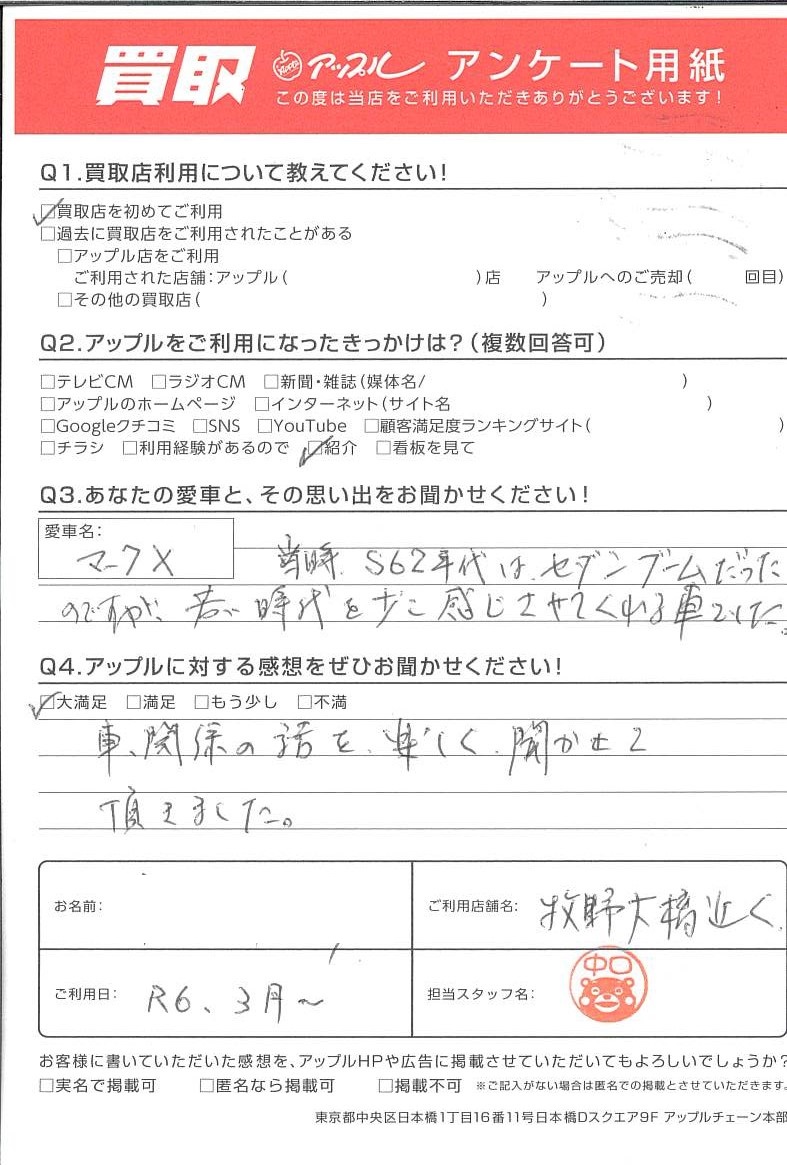 買取 アップル アンケート用紙
この度は当店をご利用いただきありがとうございます！
Q1.買取店利用について教えてください！
☑買取店を初めてご利用
□過去に買取店をご利用されたことがある
□アップル店をご利用
ご利用された店舗：アップル（　　　　）店　アップルへのご売却（　　回目）
□その他の買取店（　　　　）
Q2.アップルをご利用になったきっかけは？（複数回答可）
□テレビCM　□ラジオCM　□新聞・雑誌（媒体名/　　　　）
□アップルのホームページ　□インターネット（サイト名　　　　）
□Googleクチコミ　□SNS　□YouTube　□顧客満足度ランキングサイト（　　　　）
□チラシ　□利用経験があるので　☑紹介　□看板を見て
Q3.あなたの愛車と、その思い出をお聞かせください！
愛車名：
マークX　当時、S62年代は、セダンブームだった
のですが、若い時代を少こ感じさせてくれる車でした。
Q4.アップルに対する感想をぜひお聞かせください！
☑大満足　□満足　□もう少し　□不満
車、関係の話を、楽しく、聞かせて
頂きました。
お名前：
ご利用店舗名：牧野大橋近く
ご利用日：R6、3月〜
担当スタッフ名：中口
お客様に書いていただいた感想を、アップルHPや広告に掲載させていただいてもよろしいでしょうか？
□実名で掲載可　□匿名なら掲載可　□掲載不可　※ご記入がない場合は匿名での掲載とさせていただきます。
東京都中央区日本橋1丁目16番11号日本橋Dスクエア9F アップルチェーン本部